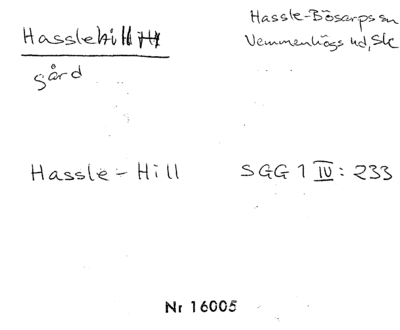 Hasslehill
Hassle-Bösarps sn
Vemmenhögs hd, Sk
gård
Hassle-Hill
SGG 1 IV: 233
Nr 16005